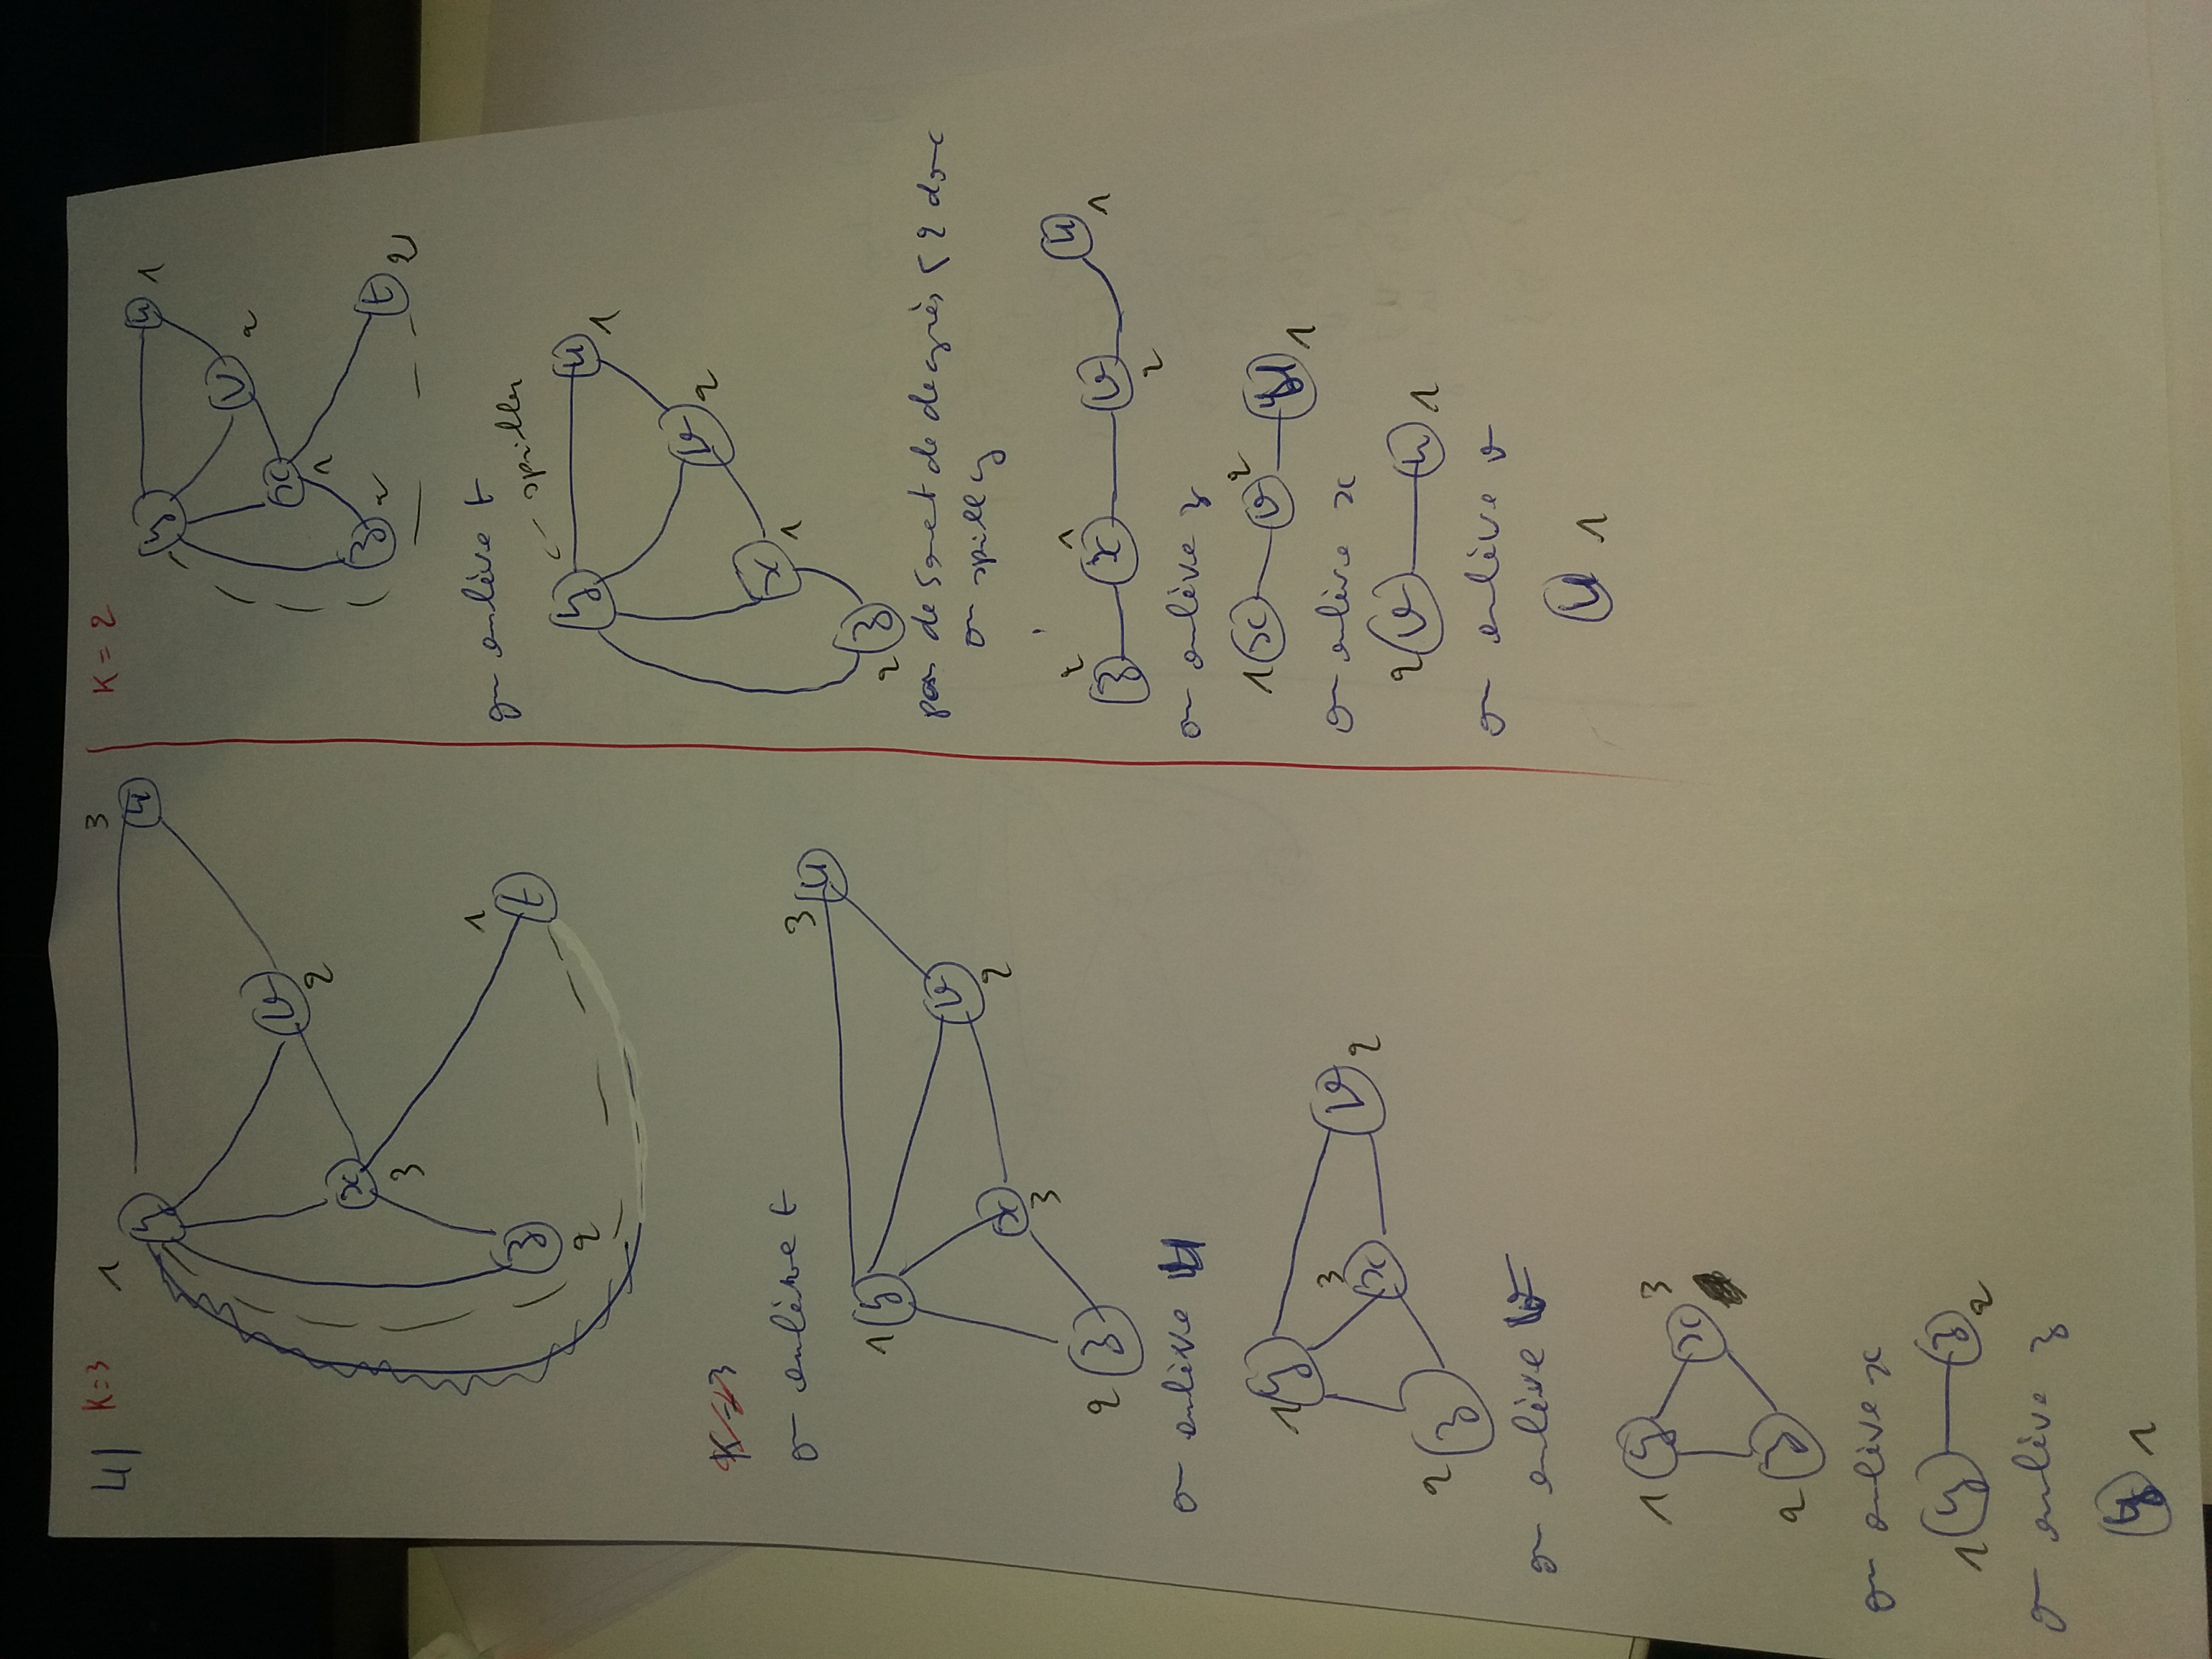 4) K=3
1 y
3 u
v 2
x 3
z 2
1 t
K=3
on enlève t
1 y
3 u
v 2
x 3
2 z
on enlève u
1 y
3 x
v 2
2 z
on enlève v
1 y
x 3
2 z
on enlève x
1 y z 2
on enlève z
y 1
K = 2
y
u 1
v 2
x 1
z 2
t 2
on enlève t
y spiller
u 1
v 2
x 1
2 z
pas de somet de degrès < 2 donc
on spill y
2 1
z x v u
2 1
on enlève z
1 x v 2 u 1
on enlève x
2 v u 1
on enlève v
u 1